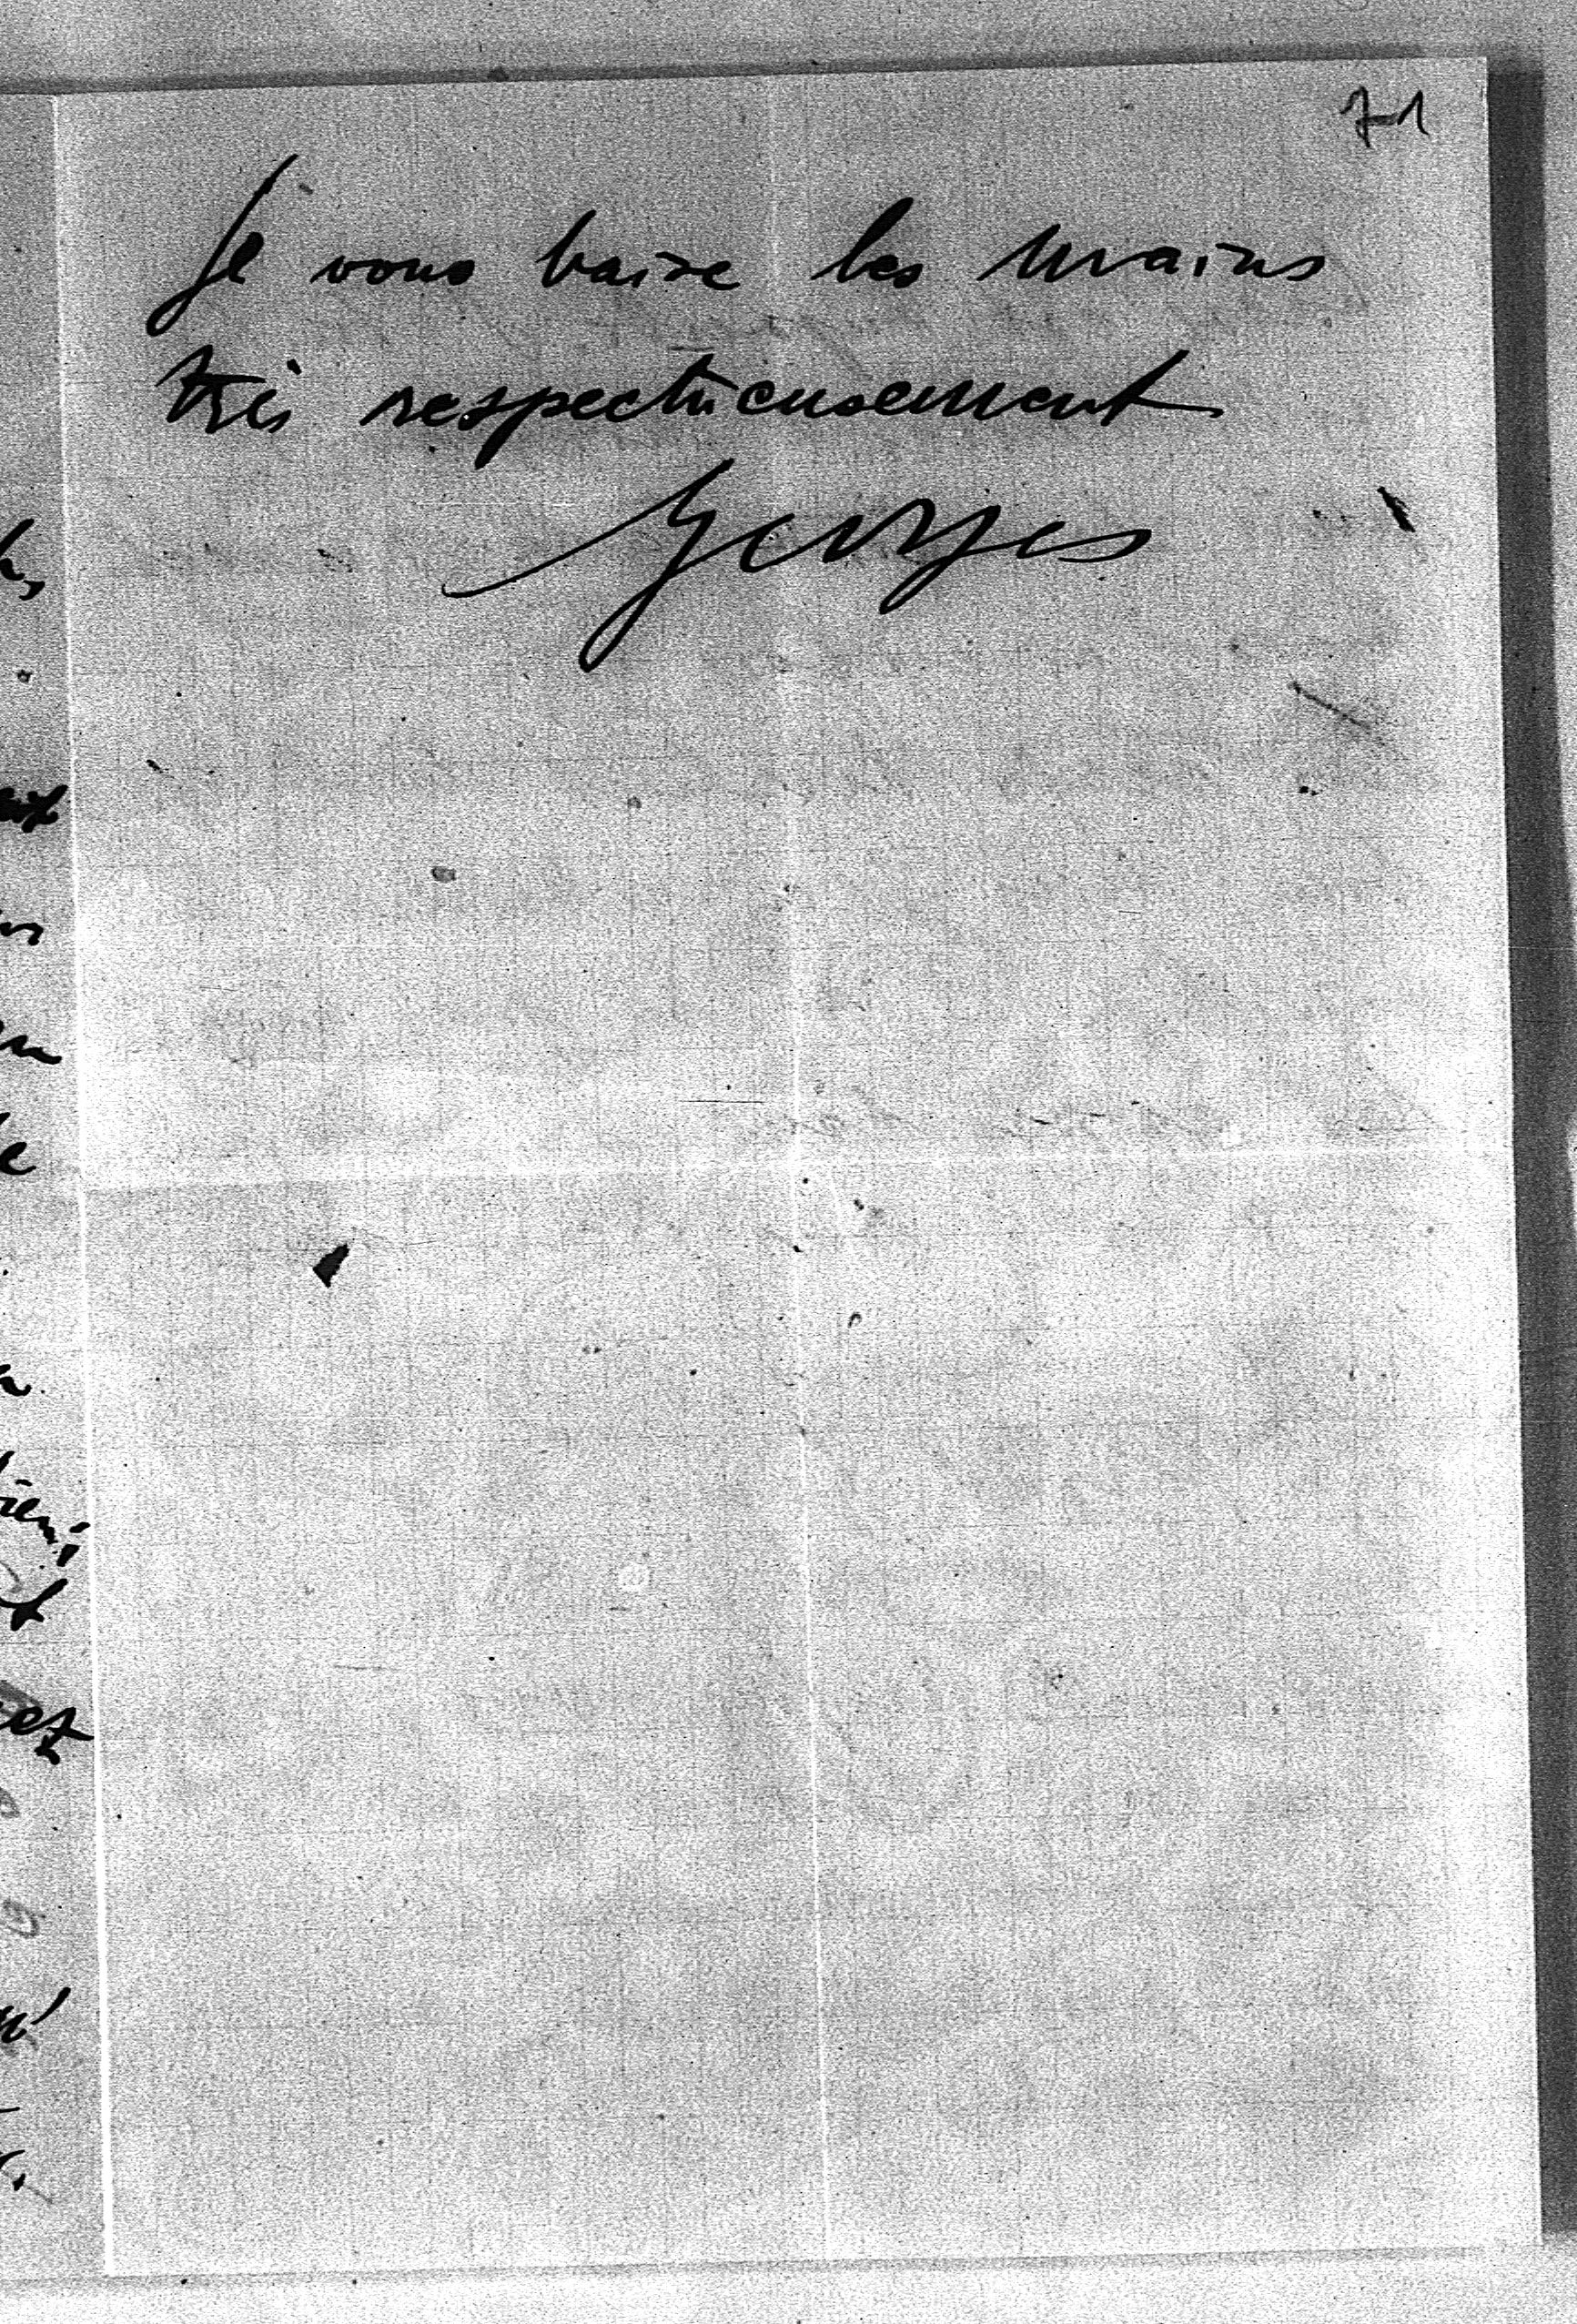 71
Je vous baise les mains
très respectueusement
Georges